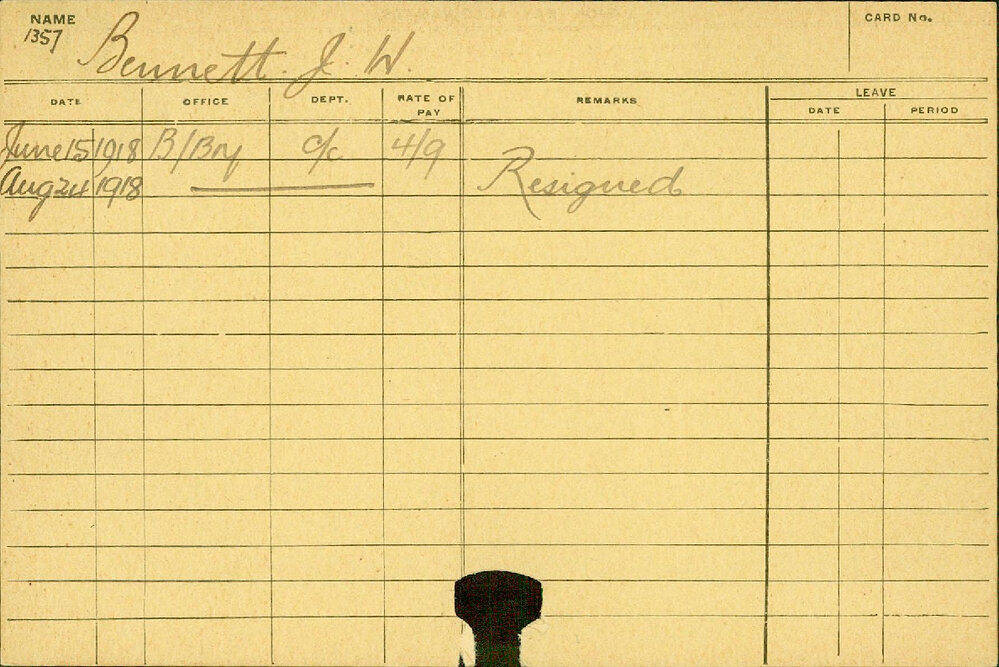 NAME CARD No.
1357 Bennett. J. W.
LEAVE
DATE OFFICE DEPT. RATE OF PAY REMARKS DATE PERIOD
June 15 1918 B/Bry c/c 4/9
Aug 24 1918 Resigned